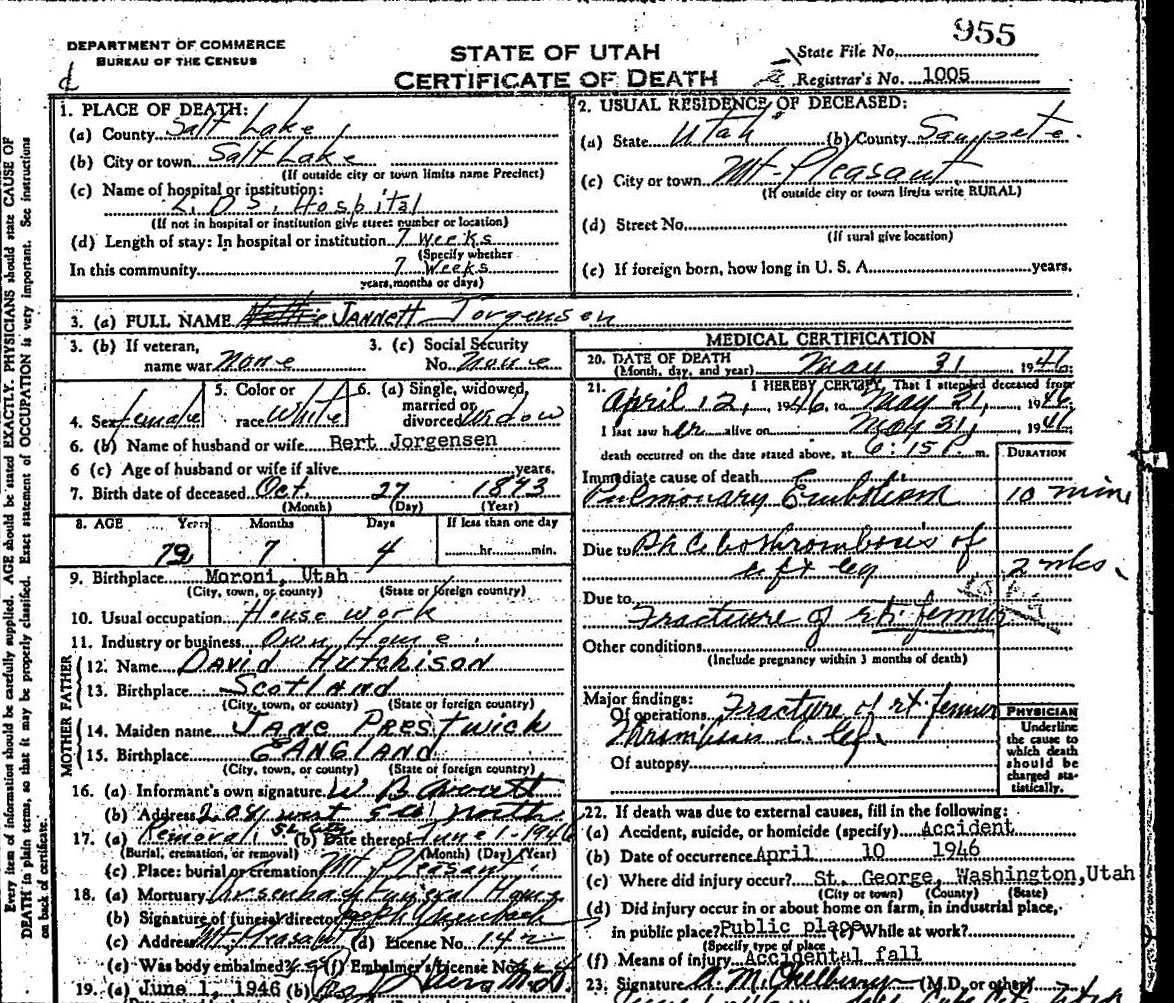 955
DEPARTMENT OF COMMERCE
BUREAU OF THE CENSUS
STATE OF UTAH
CERTIFICATE OF DEATH
State File No.
Registrar's No. 1005
Every item of information should be carefully supplied. AGE should be stated EXACTLY. PHYSICIANS should state CAUSE OF
DEATH in plain terms, so that it may be properly classified. Exact statement of OCCUPATION is very important. See instructions
on back of certificate.
1. PLACE OF DEATH:
(a) County Salt Lake
(b) City or town Salt Lake
(If outside city or town limits name Precinct)
(c) Name of hospital or institution:
L.D.S. Hospital
(If not in hospital or institution give street number or location)
(d) Length of stay: In hospital or institution 7 weeks
(Specify whether
In this community 7 weeks
years, months or days)
2. USUAL RESIDENCE OF DECEASED:
(a) State Utah (b) County Sanpete.
(c) City or town Mt. Pleasant
(If outside city or town limits write RURAL)
(d) Street No.
(If rural give location)
(e) If foreign born, how long in U. S. A. years.
3. (a) FULL NAME JANNETT Jorgensen
3. (b) If veteran,
name war None
3. (c) Social Security
No. None
4. Sex female
5. Color or
race White
6. (a) Single, widowed,
married or
divorced Widow
6. (b) Name of husband or wife Bert Jorgensen
6 (c) Age of husband or wife if alive years.
7. Birth date of deceased Oct. 27
(Month) (Day) (Year)
8. AGE Years Months Days If less than one day
7 4 hr. min.
9. Birthplace Moroni, Utah
(City, town, or county) (State or foreign country)
10. Usual occupation House work
11. Industry or business Own Home.
FATHER
12. Name David Hutchison
13. Birthplace Scotland
(City, town, or county) (State or foreign country)
MOTHER
14. Maiden name JANE PRESTWICH
15. Birthplace EANGLAND
(City, town, or county) (State or foreign country)
16. (a) Informant's own signature W B
(b) Address west North
17. (a) Removal (b) Date thereof June 1-1946
(Burial, cremation, or removal) (Month) (Day) (Year)
(c) Place: burial or cremation Mt Pleasant
18. (a) Mortuary Ursenbach Funeral Home
(b) Signature of funeral director
(c) Address Mt Pleasant (d) License No. 142
(e) Was body embalmed? (f) Embalmer's License No.
19. (a) June 1, 1946 (b)
MEDICAL CERTIFICATION
20. DATE OF DEATH
(Month, day, and year) May 31 1946
21. I HEREBY CERTIFY, That I attended deceased from
April 12, 1946 to May 31, 1946.
I last saw her alive on May 31, 1946
death occurred on the date stated above, at 6:15 P. m.
DURATION
Immediate cause of death
Pulmonary Embolism 10 mins
Due to Phlebothrombosis of
left leg 2 wks.
Due to
Fracture of rt. femur
Other conditions
(Include pregnancy within 3 months of death)
Major findings:
Of operations Fracture of rt. femur
Thrombosis l. leg.
Of autopsy
PHYSICIAN
Underline
the cause to
which death
should be
charged sta-
tistically.
22. If death was due to external causes, fill in the following:
(a) Accident, suicide, or homicide (specify) Accident
(b) Date of occurrence April 10 1946
(c) Where did injury occur? St. George, Washington, Utah
(City or town) (County) (State)
(d) Did injury occur in or about home on farm, in industrial place,
in public place? Public place (e) While at work?
(Specify type of place)
(f) Means of injury Accidental fall
23. Signature (M.D. or other)